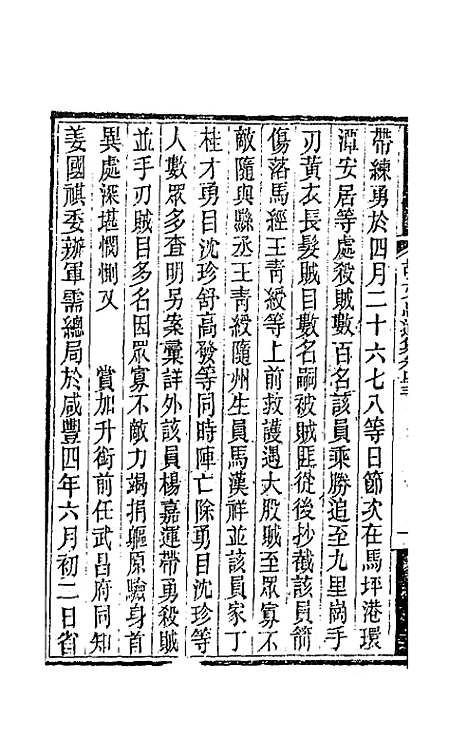 帶練勇於四月二十六七八等日節次在馬坪港環
潭安居等處殺賊數百名該員乘勝追至九里崗手
刃黃衣長髮賊目數名嗣被賊匪從後抄截該員箭
傷落馬經王靑綬等上前救護遇大股賊至眾寡不
敵隨與縣丞王靑綬隨州生員馬漢祥並該員家丁
桂才勇目沈珍舒高發等同時陣亡除勇目沈珍等
人數眾多查明另案彙詳外該員楊嘉運帶勇殺賊
並手刃賊目多名因眾寡不敵力竭捐軀原驗身首
異處深堪憫惻又　　賞加升銜前任武昌府同知
姜國祺委辦軍需總局於咸豐四年六月初二日省